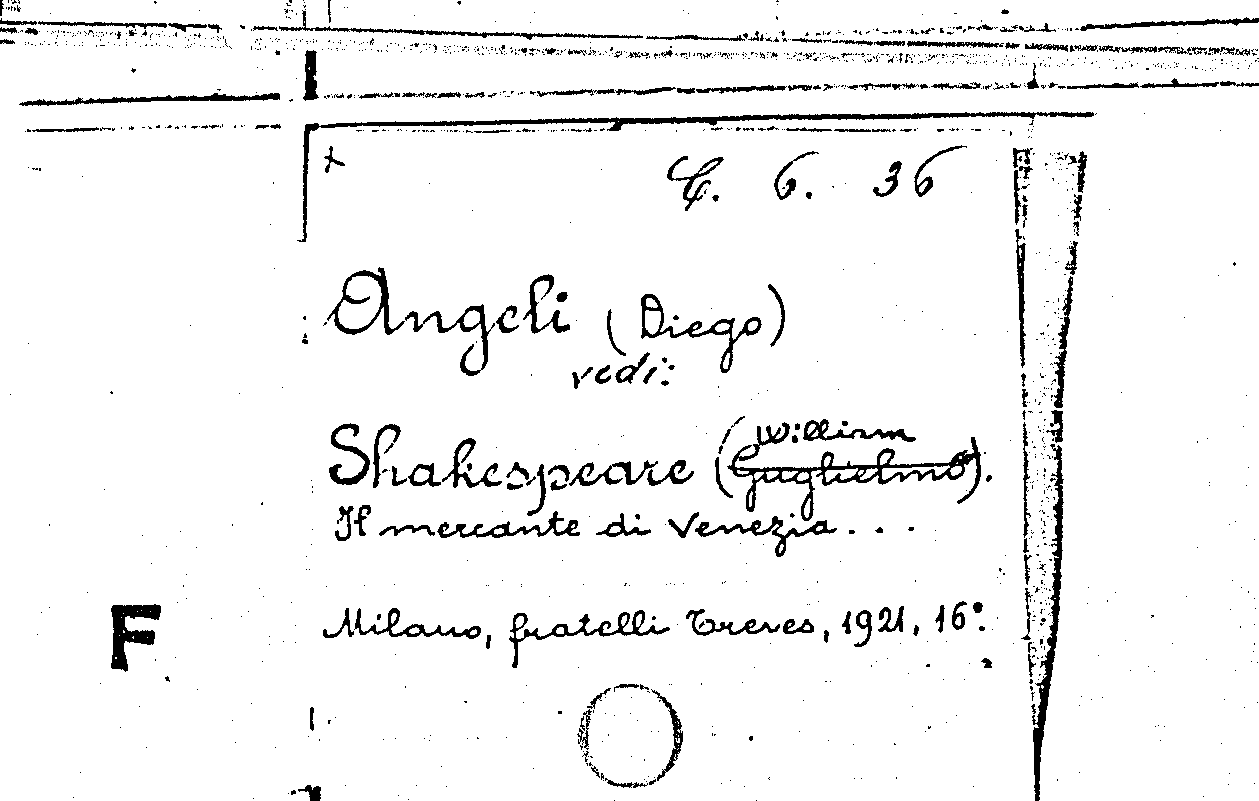 C. 6. 36
Angeli (Diego)
vedi:
William
Shakespeare (Guglielmo).
Il mercante di Venezia...
F
Milano, fratelli Treves, 1921, 16°.